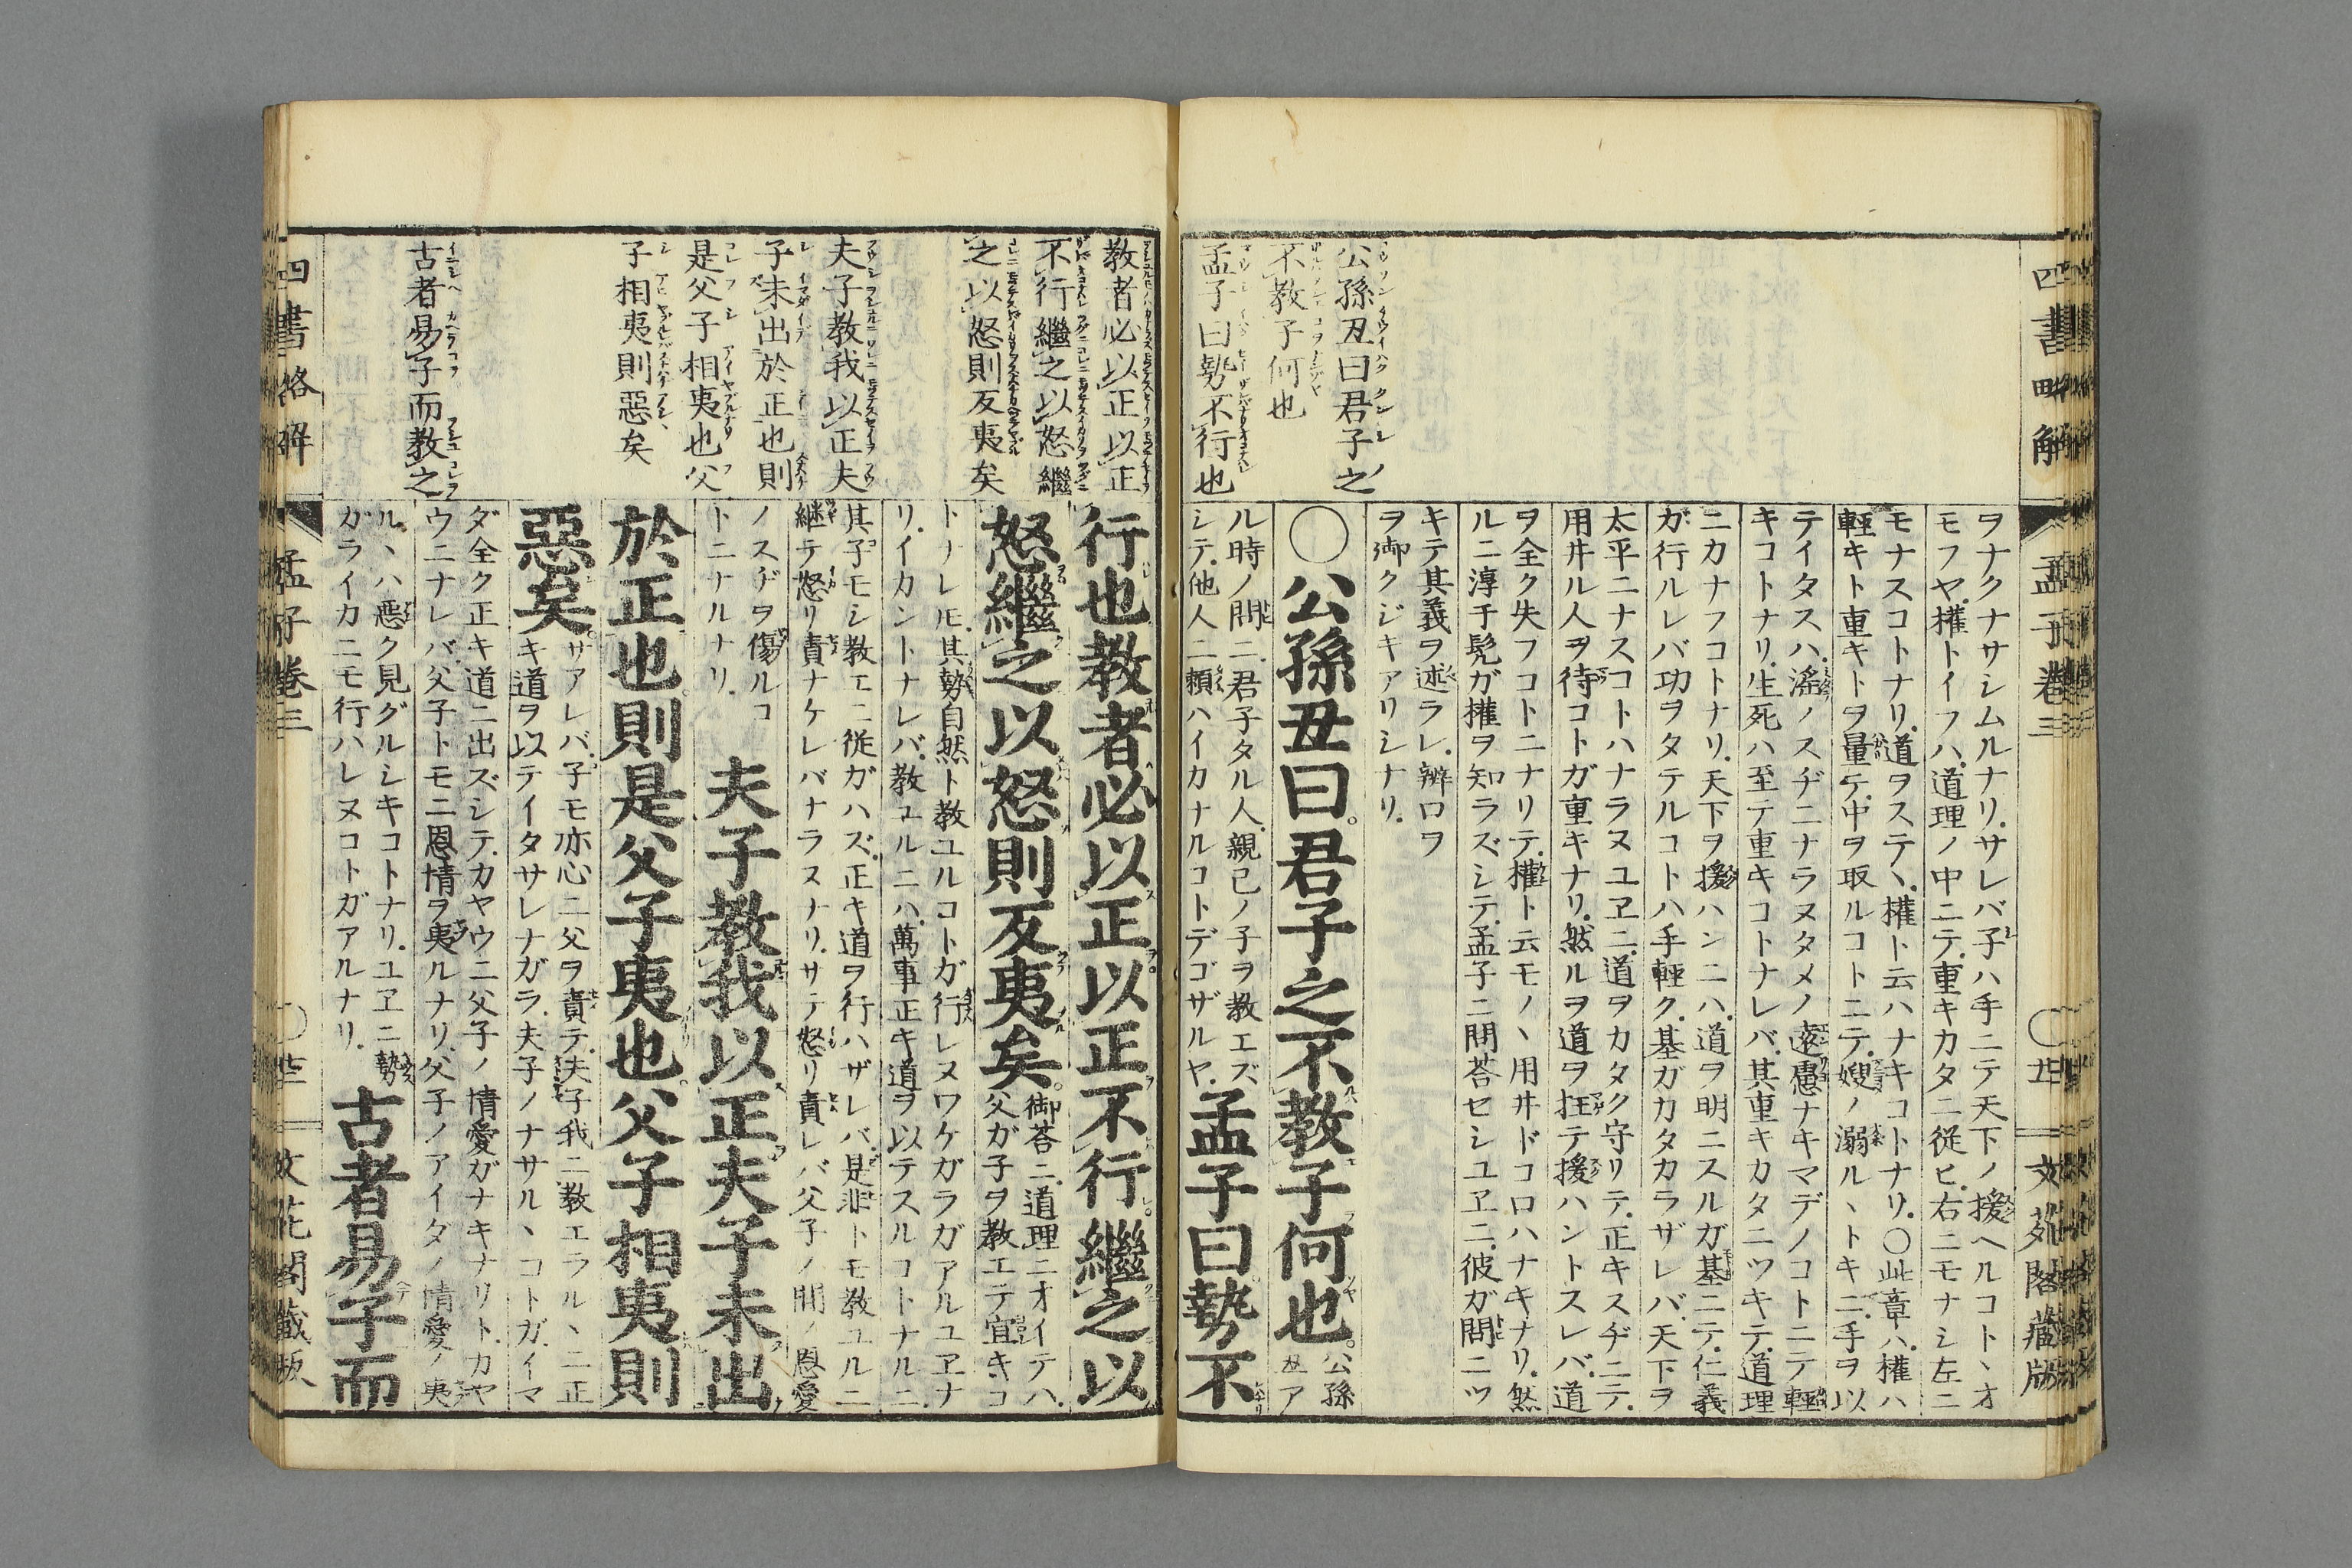 四書略解
孟子卷三
〇廿二
文苑閣藏版
ヲナクナサシムルナリ.サレバ子ハ手ニテ天下ノ援ヘルコト、オ
モフヤ.權トイフハ.道理ノ中ニテ.重キカタニ從ヒ.右ニモナシ左ニ
モナスコトナリ.道ヲステヽ.權ト云ハナキコトナリ.〇此章ハ.權ハ
輕キト重キトヲ量テ.中ヲ取ルコトニテ.嫂ノ溺ルヽトキニ.手ヲ以
テイタスハ.滛ノスヂニナラヌタメノ遠慮ナキマデノコトニテ輕
キコトナリ.生死ハ至テ重キコトナレバ.其重キカタニツキテ.道理
ニカナフコトナリ.天下ヲ援ハンニハ.道ヲ明ニスルガ基ニテ.仁義
ガ行ルレバ功ヲタテルコトハ手輕ク.基ガカタカラザレバ.天下ヲ
太平ニナスコトハナラヌユヱニ.道ヲカタク守リテ.正キスヂニテ.
用井ル人ヲ待コトガ重キナリ.然ルヲ道ヲ抂テ援ハントスレバ.道
ヲ全ク失フコトニナリテ.權ト云モノヽ用井ドコロハナキナリ.然
ルニ淳于髡ガ權ヲ知ラズシテ.孟子ニ問荅セシユヱニ.彼ガ問ニツ
キテ其義ヲ述ラレ.辨口ヲ
ヲ御クジキアリシナリ.
公孫丑曰君子之
不教子何也
孟子曰勢不行也
〇公孫丑曰。君子之不教子何也。公孫
丑ア
ル時ノ問ニ.君子タル人.親己ノ子ヲ教エズ
シテ.他人ニ頼ハイカナルコトデゴザルヤ.孟子曰勢不
教者必以正以正
不行繼之以怒繼
之以怒則反夷矣
夫子教我以正夫
子未出於正也則
是父子相夷也父
子相夷則惡矣
古者易子而教之
行也教者必以正以正不行繼之以
怒繼之以怒則反夷矣。御荅ニ.道理ニオイテハ.
父ガ子ヲ教エテ宜キコ
トナレ𪜈.其勢自然ト教ユルコトガ行レヌワケガラガアルユヱナ
リ.イカントナレバ.教ユルニハ.萬事正キ道ヲ以テスルコトナルニ.
其子モシ教エニ従ガハズ.正キ道ヲ行ハザレバ.是非トモ教ユルニ
継テ怒リ責ナケレバナラヌナリ.サテ怒リ責レバ父子ノ間ノ恩愛
ノスヂヲ傷ルコ
トニナルナリ.夫子教我以正夫子未出
於正也則是父子夷也。父子相夷則
惡矣。サアレバ.子モ亦心ニ父ヲ責テ.夫子我ニ教エラルヽニ正
キ道ヲ以テイタサレナガラ.夫子ノナサルヽコトガ.イマ
ダ全ク正キ道ニ出ズシテ.カヤウニ父子ノ情愛ガナキナリト.カヤ
ウニナレバ.父子トモニ恩情ヲ夷ルナリ.父子ノアイダノ情愛ノ夷
ルヽハ惡ク見グルシキコトナリ.ユヱニ勢
ガライカニモ行ハレヌコトガアルナリ.古者易子而
四書略解
孟子卷三
〇廿三
文花閣藏板